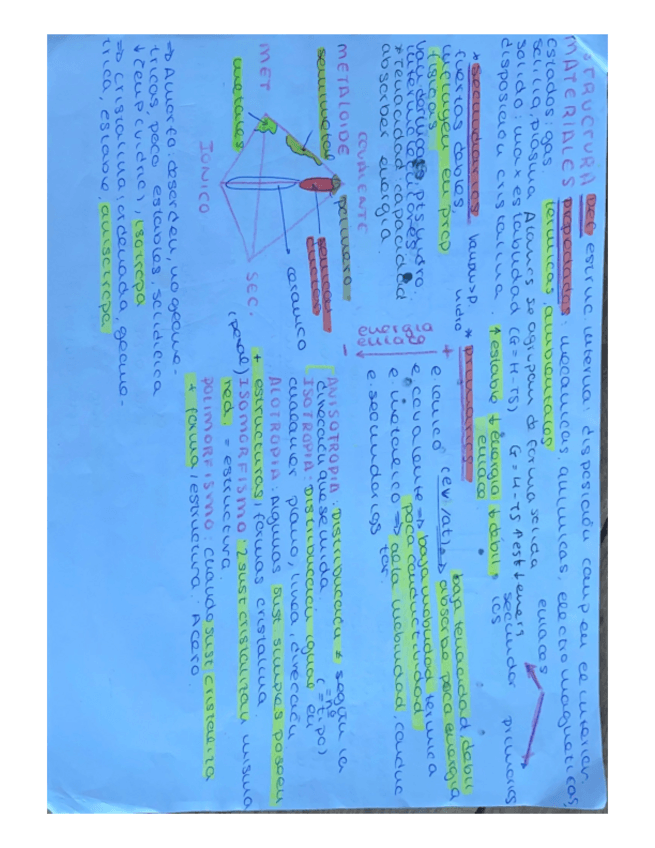 ESTRUCTURA DEF estruc interna: disposición comp en el interior.
MATERIALES propiedades: mecánicas, químicas, electromagnéticas,
térmicas, ambientales
Estados: gas.
Atomos se agrupan d forma sólida
sólido: max estabilidad (G=H-TS) G=H-TS
disposición cristalina. ↑ estable ↓ energía ↓ debil
enlace
enlaces
primarios
* secundarios
fuerzas debiles,
influyen en prop
físicas
* tenacidad: capacidad
absorber energía.
* primarios
e. ionico
baja tenacidad, debil
absorbe poca energia
e. covalente → baja movilidad termica
poca conductividad
e. metalico → alta movilidad, conduc
tor.
e. secundarios
+
energia
enlace
-
COVALENTE
METALOIDE
semimetal
polimero
MET
metales
IONICO
SEC.
semicon
ductor
ceramico
ANISOTROPIA: Distribución ≠ según la
dirección que se mida
ISOTROPIA: Distribución igual en
cualquier plano, linea, dirección
ALOTROPIA: Algunas sust simples poseen
+ estructuras, formas cristalina
ISOMORFISMO: 2 sust cristalizan misma
red. = estructura.
POLIMORFISMO: cuando sust cristaliza
+ forma / estructura. Acero
⇒ Amorfa: desorden, no geome-
tricas, poco estables, solidifica
↓ temp (vidrio), isotropa
⇒ Cristalina: ordenada, geome-
trica, estable, anisotropa